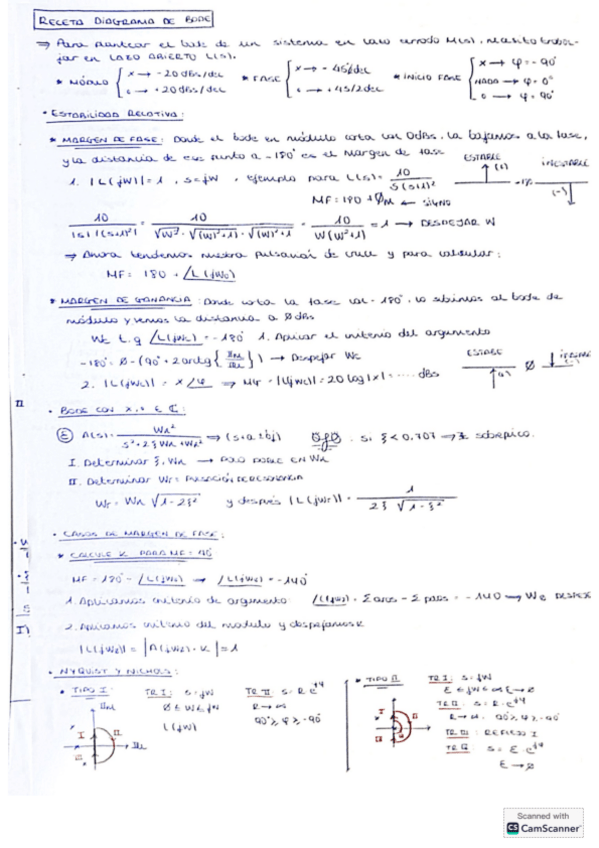 RECETA DIAGRAMA DE BODE
⇒ Para plantear el bode de un sistema en lazo cerrado M(s), necesito trabajar en LAZO ABIERTO L(s).
* MÓDULO { x → -20dBs/dec
o → +20dBs/dec
* FASE { x → -45/dec
o → +45/dec
* INICIO FASE { x → φ = -90°
NADA → φ = 0°
o → φ = 90°
• ESTABILIDAD RELATIVA:
* MARGEN DE FASE: Donde el bode en módulo corta con 0dBs, lo bajamos a la fase,
y la distancia de ese punto a -180° es el margen de fase
ESTABLE (+) -180 INESTABLE (-)
1. |L(jw)| = 1, s = jw, ejemplo para L(s) = 10 / S(s+1)²
MF = 180 + ØM ← SIGNO
10 / |s||(s+1)²| = 10 / √w² · √(w²+1) · √(w)²+1 = 10 / W(W²+1) = 1 → DESPEJAR W
⇒ Ahora tendremos nuestra pulsación de cruce y para calcular:
MF = 180 + ∠L(jw₀)
* MARGEN DE GANANCIA: Donde corta la fase con -180°, lo subimos al bode de
módulo y vemos la distancia a 0dBs
Wc t.q ∠L(jwc) = -180° 1. Aplicar el criterio del argumento
-180° = 0 - (90° + 2 arctg { Im / Re }) → Despejar Wc
ESTABLE (+) 0
2. |L(jwc)| = x ∠φ ⇒ MG = |L(jwc)| = 20 log |x| = .... dBs
II
• BODE CON x, o ∈ ℂ:
(E) A(s) = Wn² / s² + 2ξWns + Wn² ⇒ (s+a±bj) Ojo: si ξ < 0.707 → ∃ sobrepico.
I. Determinar ξ, Wn → POLO DOBLE EN Wn
II. Determinar Wr = PULSACIÓN DE RESONANCIA
Wr = Wn √1-2ξ² y después |L(jWr)| = 1 / 2ξ √1-ξ²
• CASOS DE MARGEN DE FASE:
* CALCULE K PARA MF = 40°
MF = 180° - ∠L(jw₀) → ∠L(jw₀) = -140°
1. Aplicamos criterio de argumento: ∠L(jw₀) = Σ ceros - Σ polos = -140 → Wc DESPEJ
2. Aplicamos criterio del modulo y despejamos K
|L(jwc)| = |A(jwc) · K| = 1
• NYQUIST Y NICHOLS:
• TIPO I: TR I: s = jw TR II: s = R e^jφ
Im 0 ≤ W ≤ ∞ R → ∞
I II L(jw) 90° ≥ φ ≥ -90°
III Re
* TIPO II TR I: s = jw
ε ≤ jw ≤ ∞ ε → 0
TR II: s = R · e^jφ
R → ∞. 90° ≥ φ ≥ -90°
TR III: REFLEJO I
TR IV: s = ε · e^jφ
ε → 0
Scanned with
CS CamScanner